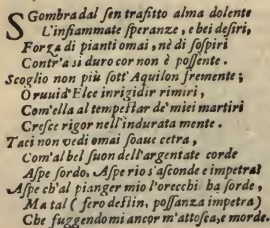 SGombra dal sen trafitto alma dolente
L'infiammate speranze, e bei desiri,
Forza di pianti omai, nè di sospiri
Contr'a si duro cor non è possente.
Scoglio non più sott'Aquilon fremente;
O ruuid'Elce inrigidir rimiri,
Com'ella al tempestar de' miei martiri
Cresce rigor nell'indurata mente.
Taci non vedi omai soaue cetra,
Com'al bel suon dell'argentate corde
Aspe sordo, Aspe rio s'asconde e impetra!
Aspe ch'al pianger mio l'orecchi ha sorde,
Ma tal (fero destin, possanza impetra)
Che fuggendomi ancor m'attosca, e morde.